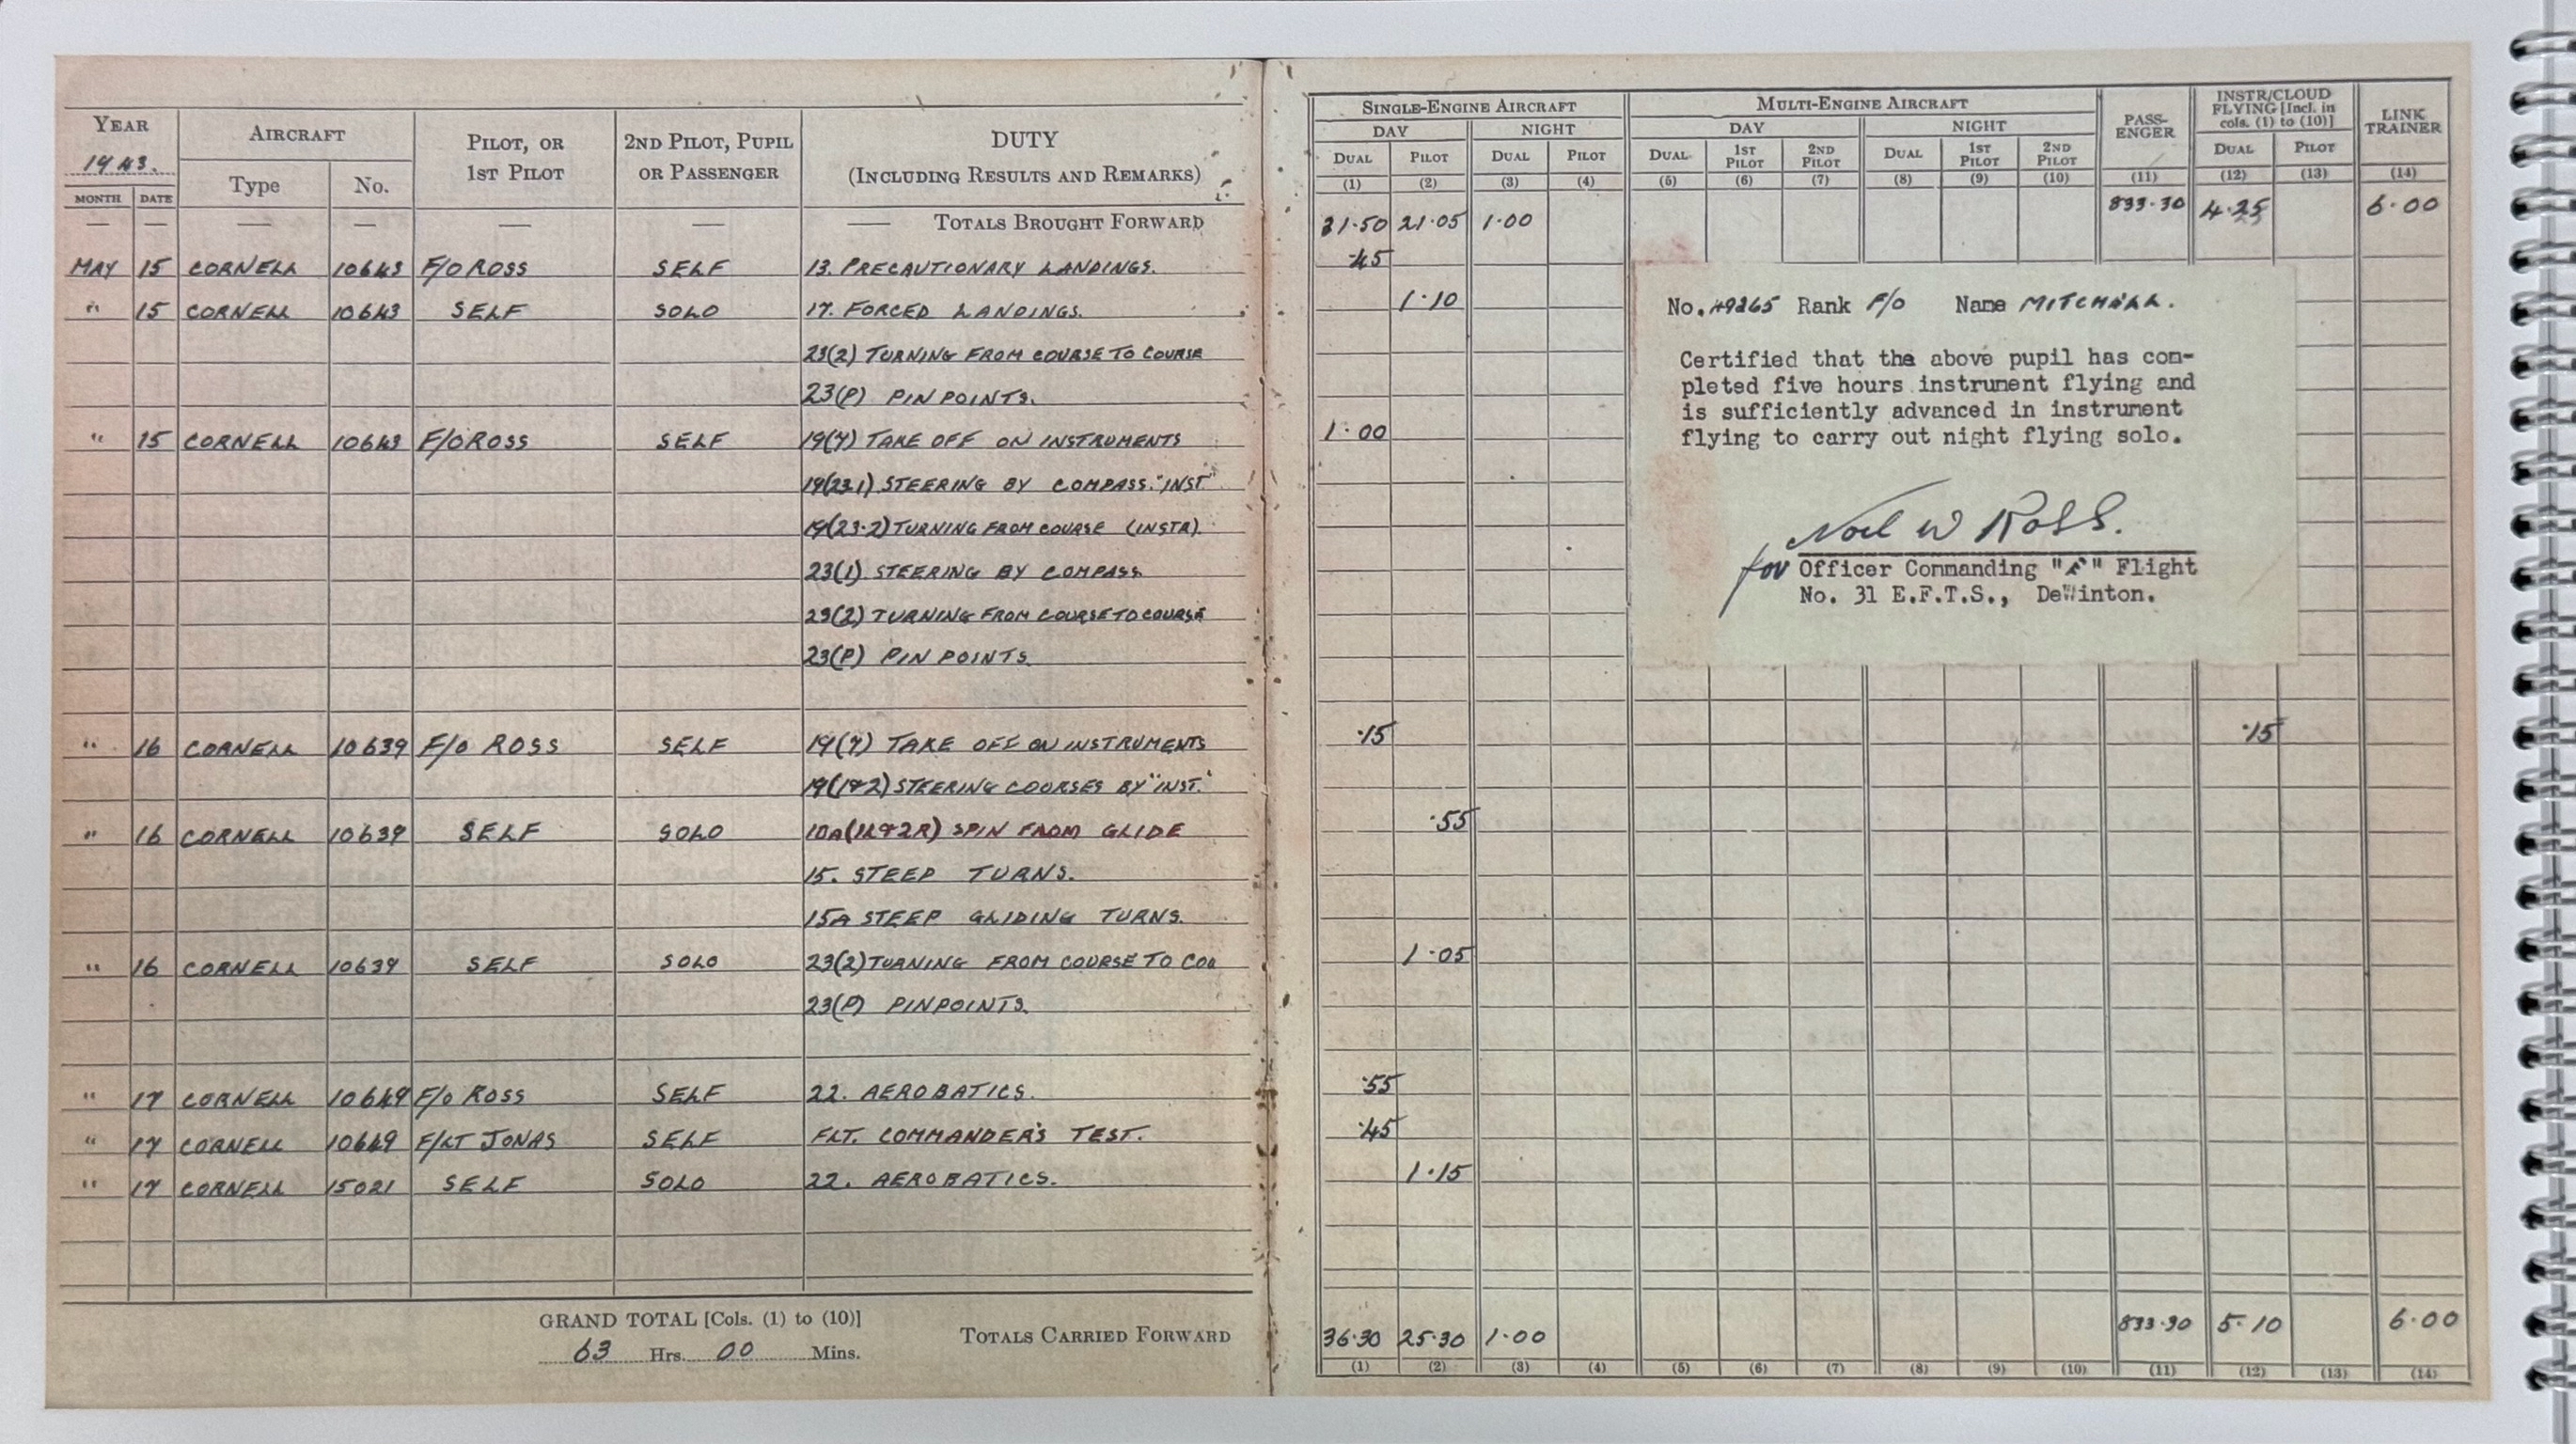 YEAR 1943. AIRCRAFT PILOT, OR 1ST PILOT 2ND PILOT, PUPIL OR PASSENGER DUTY (INCLUDING RESULTS AND REMARKS)
MONTH DATE Type No.
— — — — — — — TOTALS BROUGHT FORWARD
MAY 15 CORNELL 10643 F/O ROSS SELF 13. PRECAUTIONARY LANDINGS.
" 15 CORNELL 10643 SELF SOLO 17. FORCED LANDINGS.
23(2) TURNING FROM COURSE TO COURSE
23(P) PIN POINTS.
" 15 CORNELL 10643 F/O ROSS SELF 19(7) TAKE OFF ON INSTRUMENTS
19(23.1) STEERING BY COMPASS. "INST"
19(23.2) TURNING FROM COURSE (INSTR).
23(1). STEERING BY COMPASS
23(2) TURNING FROM COURSE TO COURSE
23(P) PIN POINTS.
" 16 CORNELL 10639 F/O ROSS SELF 19(7) TAKE OFF ON INSTRUMENTS
19(1&2) STEERING COURSES BY "INST."
" 16 CORNELL 10639 SELF SOLO 10A(1L&2R) SPIN FROM GLIDE
15. STEEP TURNS.
15A STEEP GLIDING TURNS.
" 16 CORNELL 10639 SELF SOLO 23(2) TURNING FROM COURSE TO COU
23(P) PINPOINTS.
" 17 CORNELL 10649 F/O ROSS SELF 22. AEROBATICS.
" 17 CORNELL 10649 F/LT JONAS SELF FLT. COMMANDER'S TEST.
" 17 CORNELL 15021 SELF SOLO 22. AEROBATICS.
GRAND TOTAL [Cols. (1) to (10)]
63 Hrs. 00 Mins.
TOTALS CARRIED FORWARD
SINGLE-ENGINE AIRCRAFT MULTI-ENGINE AIRCRAFT PASS-ENGER INSTR/CLOUD FLYING [Incl. in cols. (1) to (10)] LINK TRAINER
DAY NIGHT DAY NIGHT
DUAL PILOT DUAL PILOT DUAL 1ST PILOT 2ND PILOT DUAL 1ST PILOT 2ND PILOT DUAL PILOT
(1) (2) (3) (4) (5) (6) (7) (8) (9) (10) (11) (12) (13) (14)
31.50 21.05 1.00 833.30 4.25 6.00
.45
1.10
1.00
.15 .15
.55
1.05
.55
.45
1.15
36.30 25.30 1.00 833.30 5.10 6.00
(1) (2) (3) (4) (5) (6) (7) (8) (9) (10) (11) (12) (13) (14)
No. 49265 Rank F/O Name MITCHELL.
Certified that the above pupil has com-
pleted five hours instrument flying and
is sufficiently advanced in instrument
flying to carry out night flying solo.
Noel W Ross.
for Officer Commanding "F" Flight
No. 31 E.F.T.S., DeWinton.